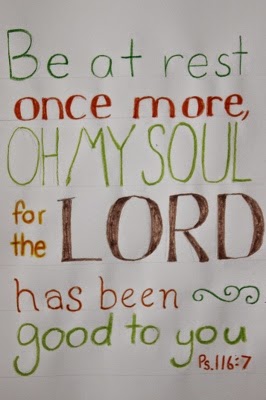 Be at rest
once more,
OH, MY SOUL
for
the LORD
has been
good to you
Ps. 116:7